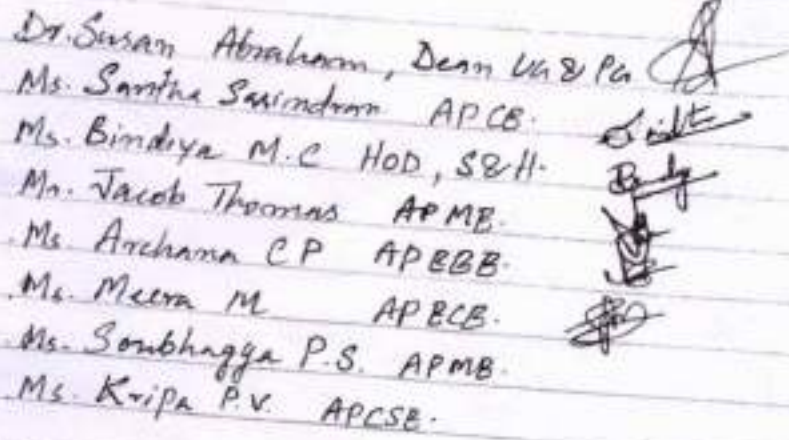 Dr. Susan Abraham, Dean UG & PG
Ms. Santha Sasindran APCE.
Ms. Bindiya M.C HOD, S&H.
Mr. Jacob Thomas APME.
Ms Archana C P APEEE.
Ms. Meera M APECE.
Ms. Soubhagya P.S. APME.
Ms. Kripa P.V. APCSE.